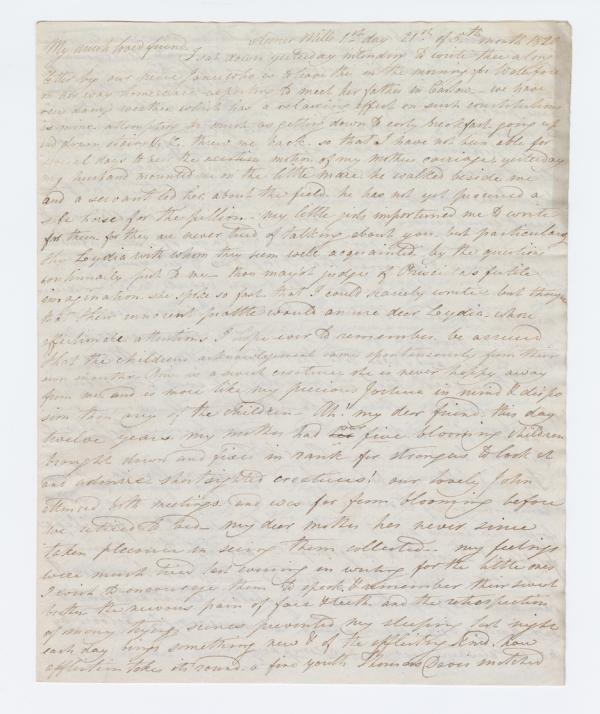 My much loved friend Millo 1st day 21st of 5th month
I sat down yesterday intending to write thee a long
letter by our niece Jane who is to leave me in the morning for Waterford
on her way homewards expecting to meet her father in Carlow we have
very damp weather which has a relaxing effect on such constitutions
as mine attempting so much as getting down to early breakfast going up
and down stairs &c. threw me back. so that I have not been able for
several days to bear the motion of my mothers carriage. yesterday
my husband mounted me on the little mare he walked beside me
and a servant led her about the field. he has not yet procured a
safe horse for the pillion. my little girls importuned me to write
for them for they are never tired of talking about you but particularly
Lydia with whom they seem well acquainted by the questions
continually put to me thou mayst judge of fertile
imagination. she spoke so fast that I could scarcely write but thought
that their innocent prattle would amuse dear Lydia whose
affectionate attentions I hope ever to remember. be assured
that the childrens acknowledgement came spontaneously from their
own mouths. is a sweet creature she is never happy away
from me and is more like my precious Joshua in mind & dispo
sition than any of the children. Ah! my dear friend this day
twelve years my mother had five blooming children
brought down and fixed in rank for strangers to look at
and admire shortsighted creatures! our lovely John
attended both meetings and was far from blooming before
we retired to bed. my dear mother has never since
taken pleasure in seeing them collected. my feelings
were much tried last evening in writing for the little ones
I wish to encourage them to speak & remember their sweet
brother. the nervous pain of face & teeth and the retrospection
of many trying scenes prevented my sleeping last night
each day brings something new & of the afflicting kind. how
affliction takes its round. a fine youth Thomas Davis matched